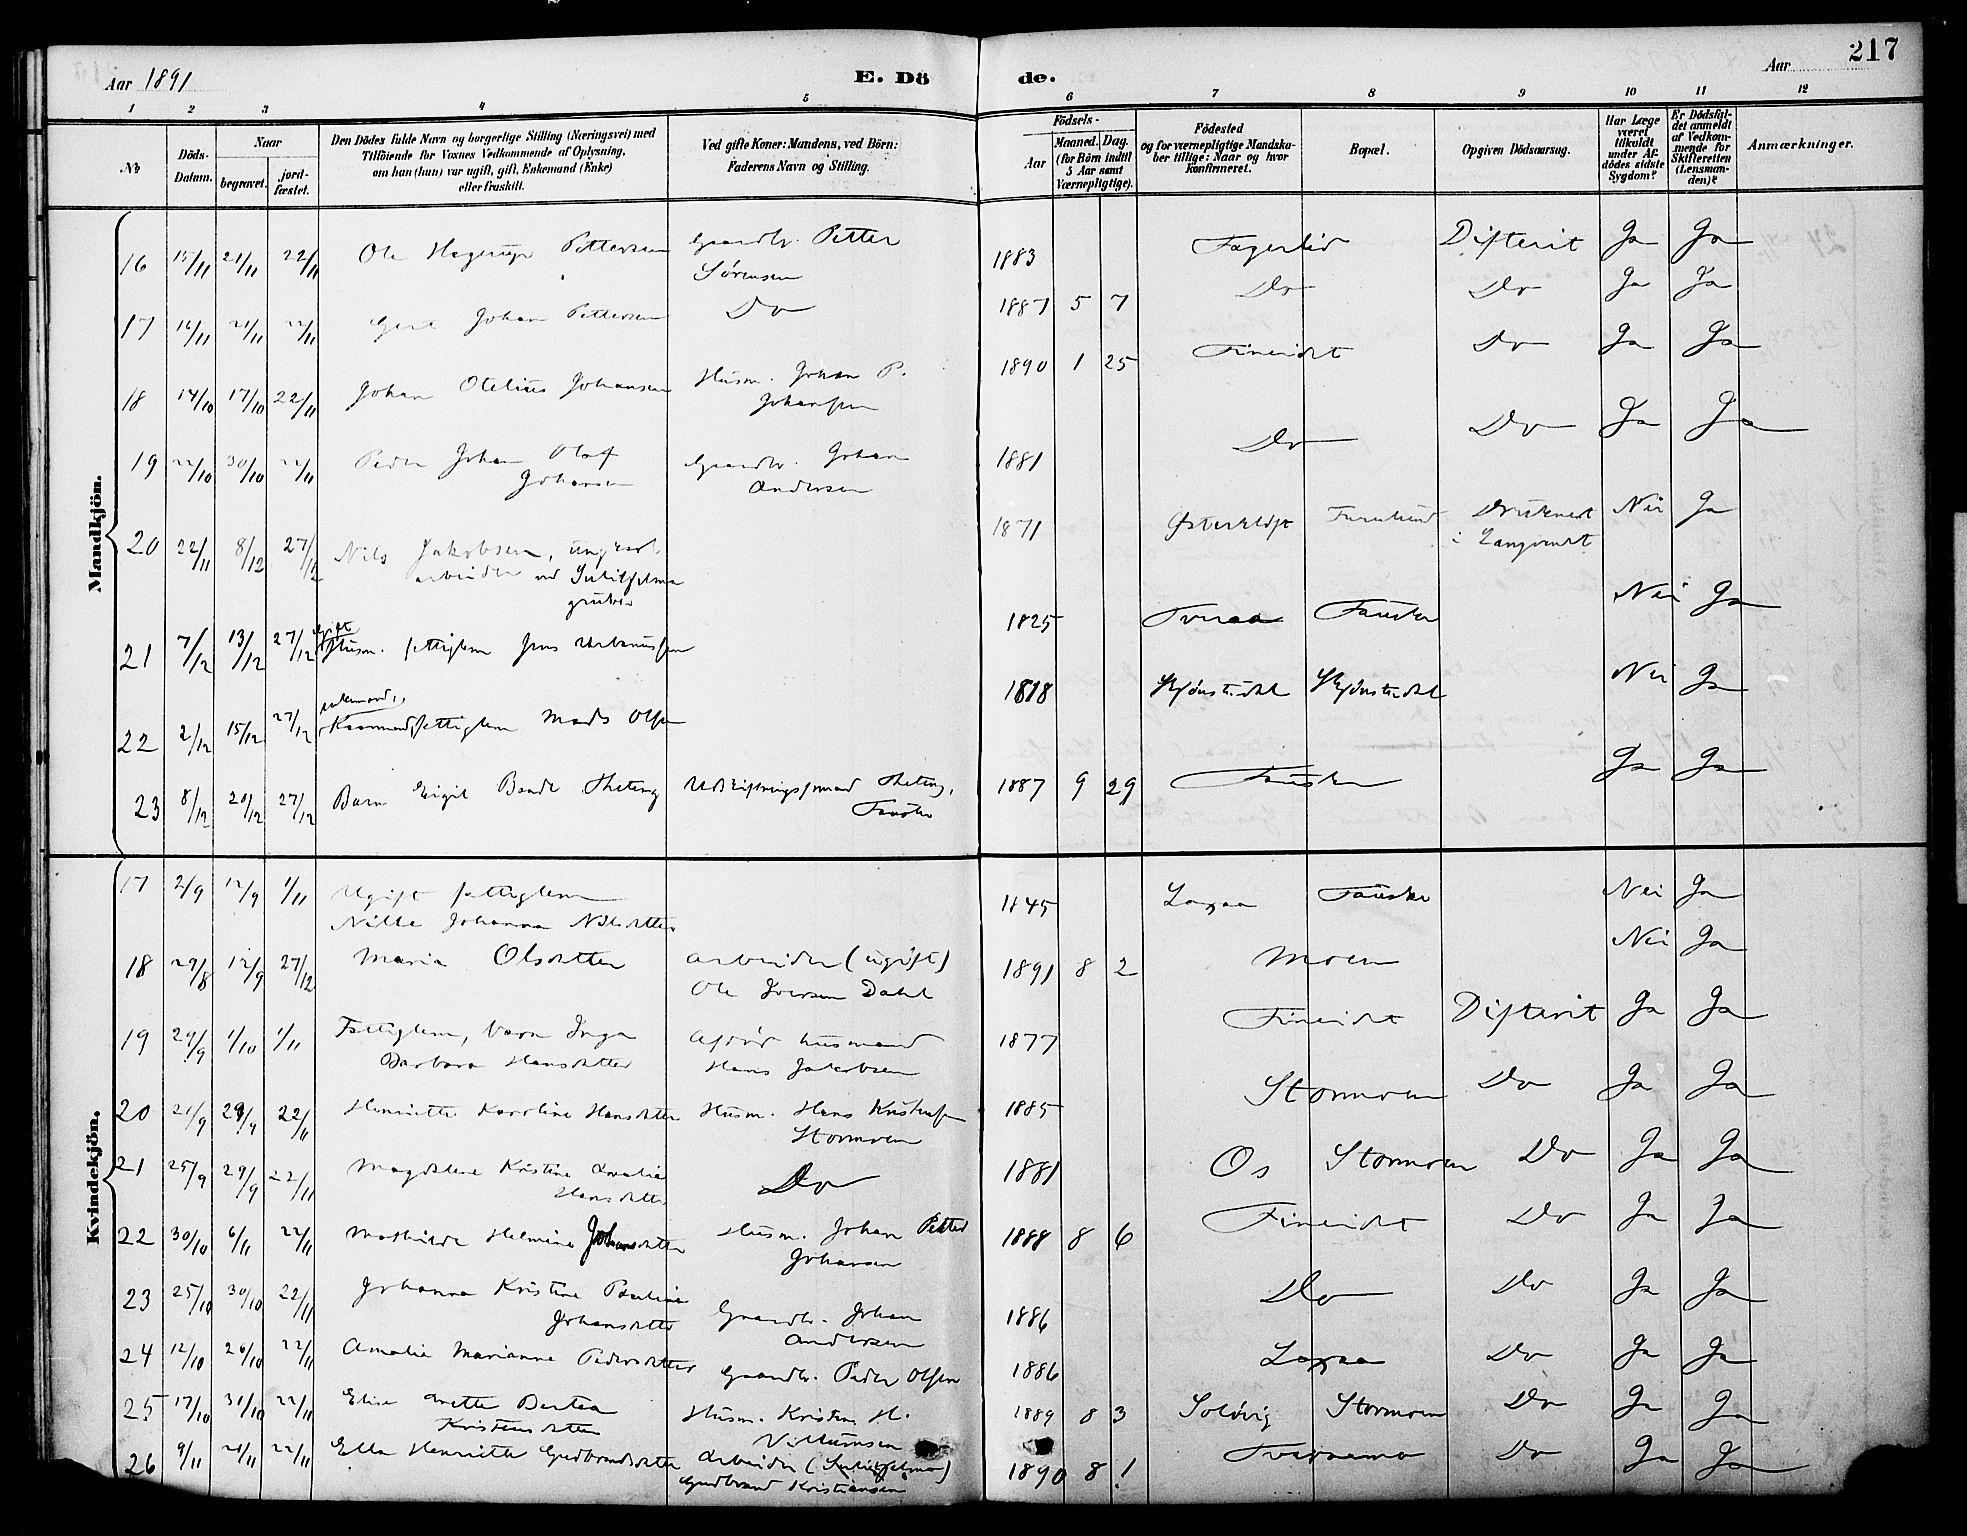 Aar 1891
E. Döde.
Aar
217
1 2 3 4 5 6 7 8 9 10 11 12
No
Döds-Datum.
Naar
begravet.
jordfæstet.
Den Dödes fulde Navn og borgerlige Stilling (Næringsvei) med
Tilföiende for Voxnes Vedkommende af Oplysning,
om han (hun) var ugift, gift, Enkemand (Enke)
eller fraskilt.
Ved gifte Koner: Mandens, ved Börn:
Faderens Navn og Stilling.
Födsels-
Aar
Maaned. Dag.
(for Börn indtil
5 Aar samt
Værnepligtige).
Födested
og for værnepligtige Mandskaber tillige: Naar og hvor
konfirmeret.
Bopæl.
Opgiven Dödsaarsag.
Har Læge
været
tilkaldt
under Afdödes sidste
Sygdom?
Er Dödsfaldet anmeldt
af Vedkommende for
Skifteretten
(Lensmanden)?
Anmærkninger.
Mandkjön.
16 15/11 21/11 22/11 Ole Hagerup Pettersen Gaardbr. Petter Sørensen 1883 Fagerlid Difterit Ja Ja
17 16/11 21/11 22/11 Gert Johan Pettersen Do 1887 5 7 Do Do Ja Ja
18 14/10 17/10 22/11 Johan Otelius Johansen Husm. Johan P. Johanssen 1890 1 25 Fineidet Do Ja Ja
19 22/10 30/10 22/11 Peder Johan Olaf Johansen Gaardbr. Johan Andersen 1881 Do Do Ja Ja
20 22/11 8/12 27/12 Nils Jakobsen, ungkarl arbeider ved Sulitjelma gruber 1871 Østerkløft Furulund Druknet i Langvandt Nei Ja
21 7/12 13/12 27/12 gift Husm. fattiglem Jens Urbanussen 1825 Tveraa Fauske Nei Ja
22 2/12 15/12 27/12 enkemand, Kaarmand fattiglem Mads Olsen 1818 Kjønstadet Kjønstadet Nei Ja
23 8/12 20/12 27/12 Barn Eigil Bonde Theting Udskiftningsformand Theting, Fauske 1887 9 29 Fauske Ja Ja
Kvindekjön.
17 2/9 12/9 1/11 Ugift fattiglem Nille Johanna Nilsdatter 1845 Laxaa Fauske Nei Ja
18 29/8 12/9 27/12 Maria Olsdatter Arbeider (ugift) Ole Iversen Dahl 1891 8 2 Moen Nei Ja
19 29/9 1/10 1/11 Fattiglem, barn Inga Barbara Hansdatter Afdød husmand Hans Jakobsen 1877 Fineidet Difterit Ja Ja
20 21/9 29/9 22/11 Henriette Karoline Hansdatter Husm. Hans Stormoen 1885 Stormoen Do Ja Ja
21 25/9 29/9 22/11 Magdalene Kristine Amalia Hansdatter Do 1881 Os Stormoen Do Ja Ja
22 30/10 6/11 22/11 Mathilde Helmine Johansdatter Husm. Johan Petter Johansen 1888 8 6 Fineidet Do Ja Ja
23 25/10 30/10 22/11 Johanna Kristine Pauline Johansdatter Gaardbr. Johan Andersen 1886 Do Do Ja Ja
24 12/10 26/10 22/11 Amalie Marianne Pedersdatter Gaardbr. Peder Olsen 1886 Laxaa Do Ja Ja
25 17/10 31/10 22/11 Elise Anette Bertea Kristensdatter Husm. Kristen H. Villumsen 1889 8 3 Solvig Stormoen Do Ja Ja
26 9/11 21/11 22/11 Ella Henriette Gudbrandsdatter Arbeider (Sulitjelma) Gudbrand Kristiansen 1890 8 1 Do Ja Ja